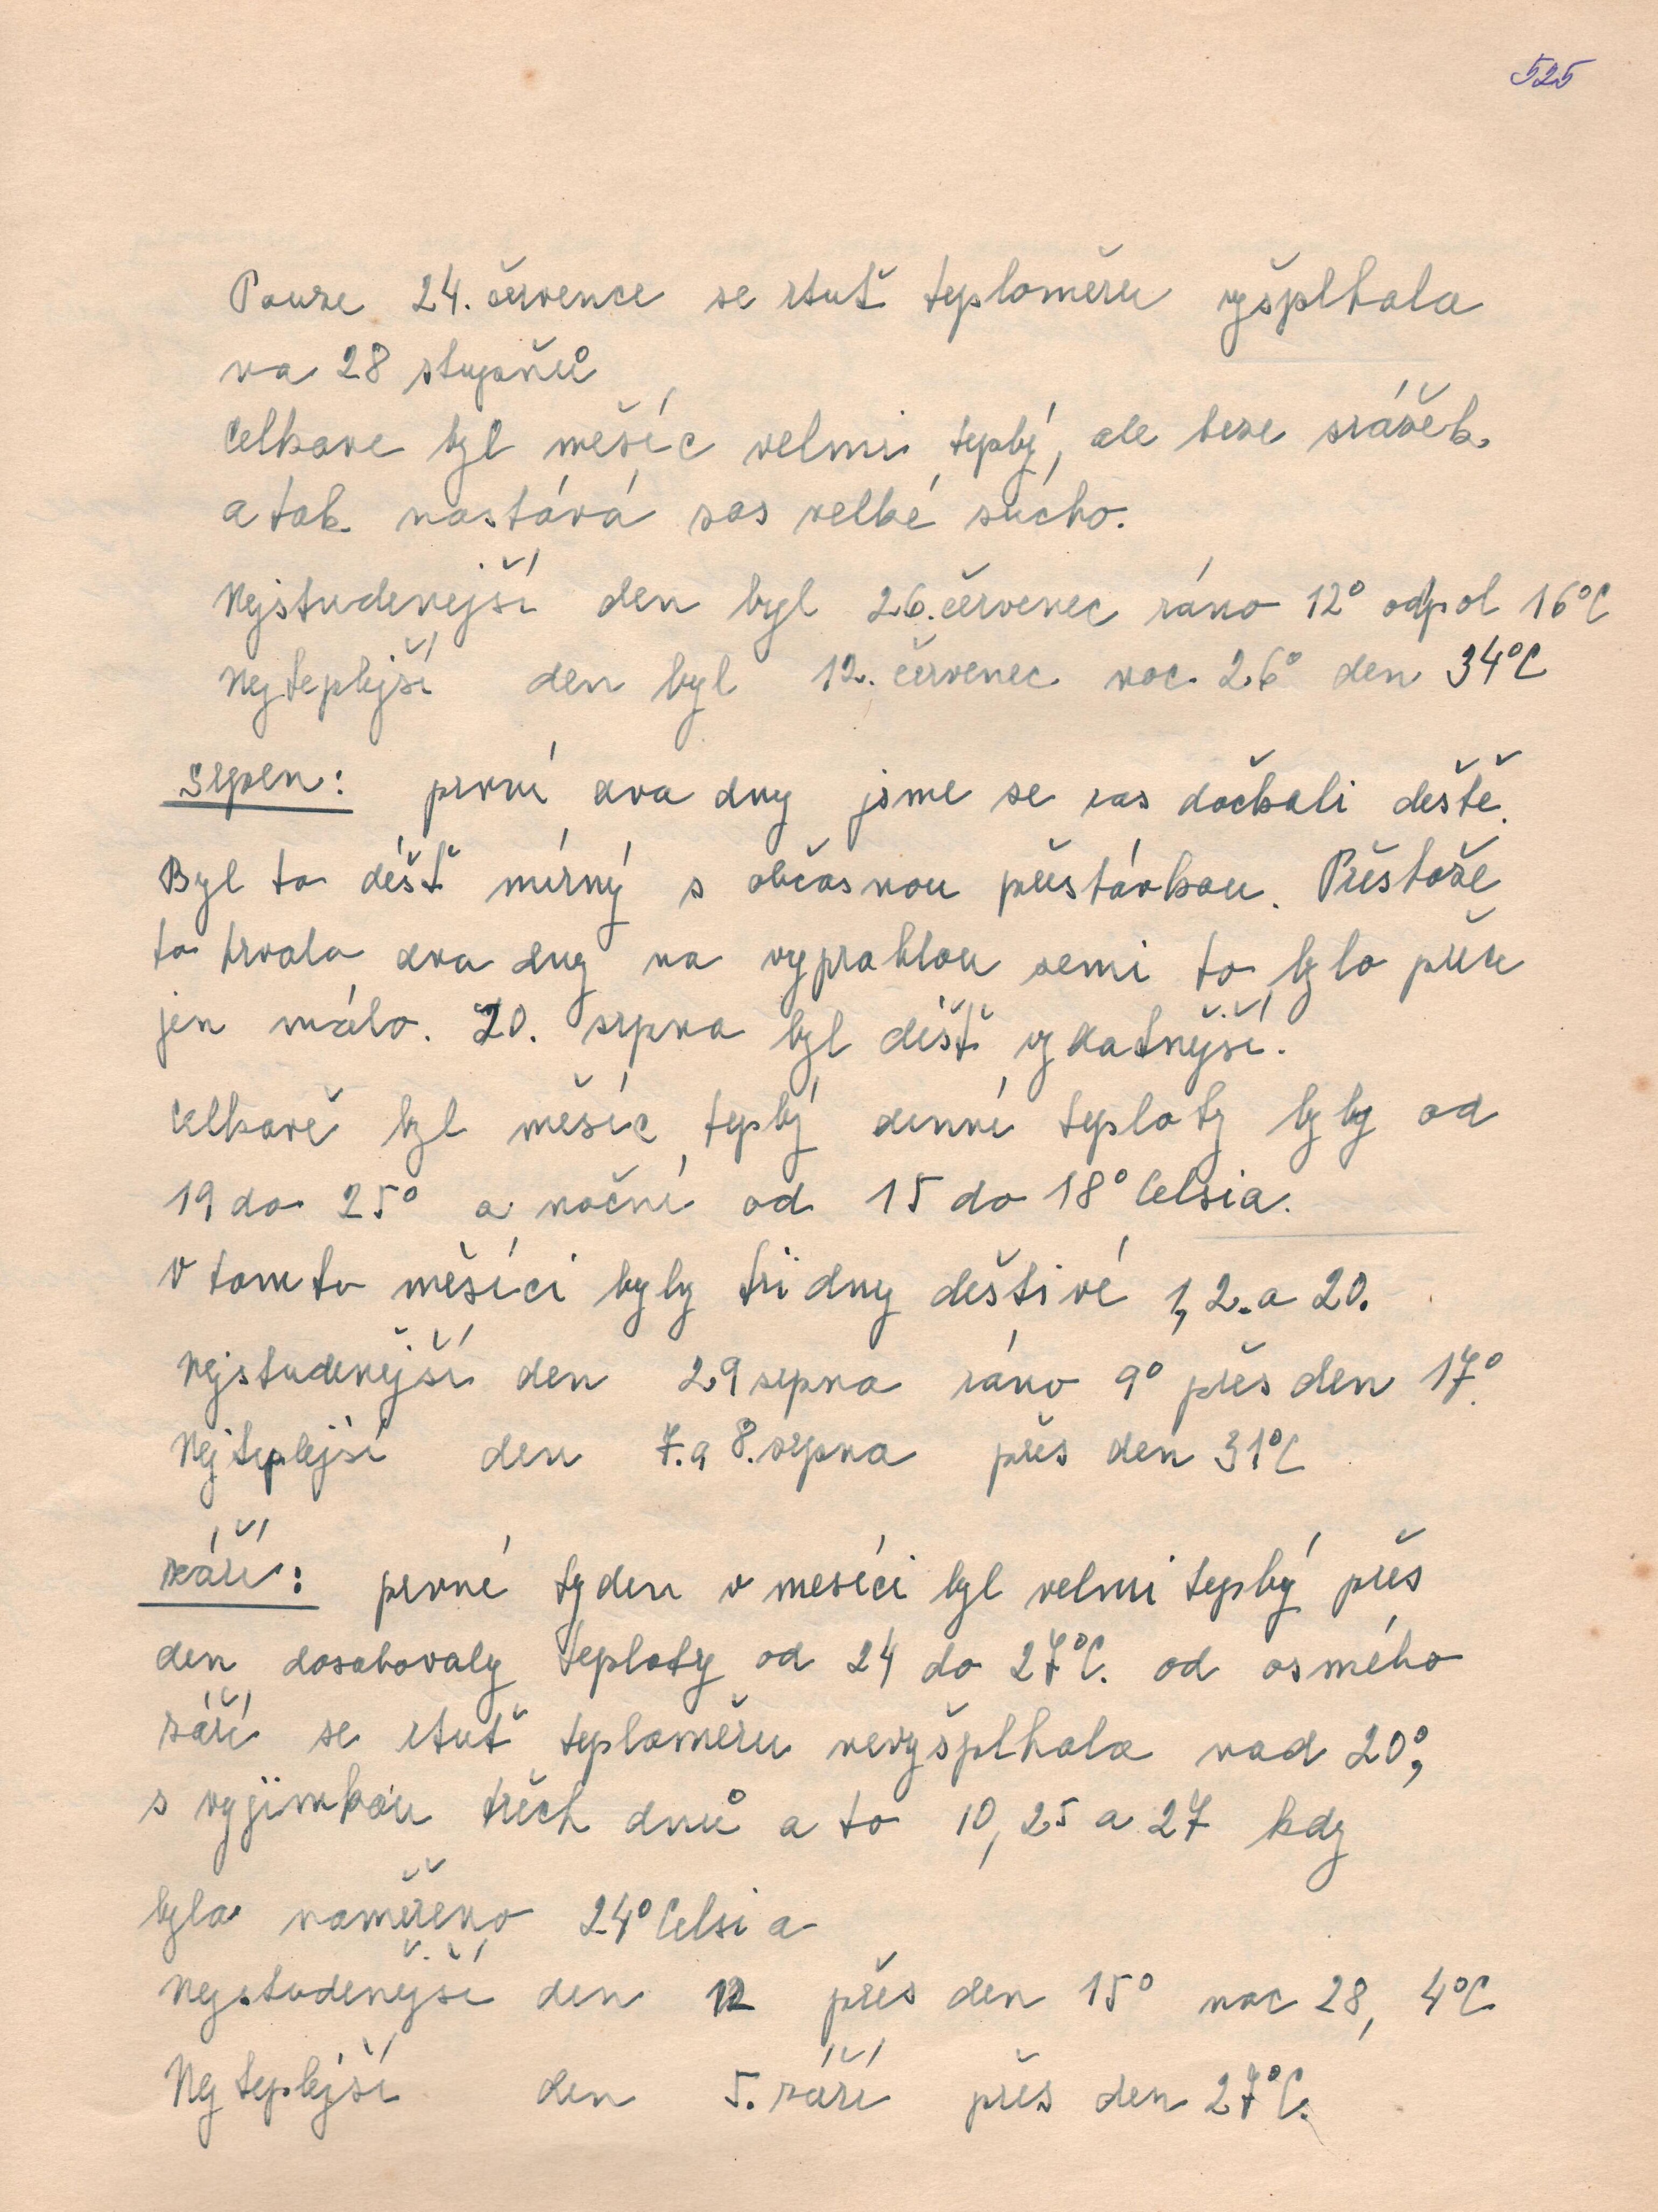 525
Pouze 24. července se rtuť teploměru vyšplhala
na 28 stupňů
Celkove byl měšíc velmi teplý, ale beze srážek.
a tak nastává zas velké súcho.
Nejstudenejší den byl 26. červenec ráno 12° odpol 16°C
Nejteplejší den byl 12. červenec noc 26° den 34°C
Srpen: první dva dny jsme se zas dočkali deště.
Byl to déšť mírný s občasnou přestávkou. Přestože
to trvalo dva dny na vyprahlou zemi to bylo příliš
jen málo. 20. srpna byl déšť vydatnější.
Celkově byl měsíc teplý denní teploty byly od
19 do 25° a noční od 15 do 18° Celsia.
V tomto měšíci byly tři dny deštivé 1, 2. a 20.
Nejstudenější den 29 srpna ráno 9° přes den 17°.
Nejteplejší den 7. a 8. srpna přes den 31°C
září: první tyden v mesíci byl velmi teplý přes
den dosahovaly teploty od 24 do 27°C. od osmého
září se rtuť teploměru nevyšplhala nad 20°,
s vyjimkou třech dnů a to 10, 25 a 27 kdy
bylo naměřeno 24° Celsia
Nejstudenější den 12 přes den 15° noc 28, 4°C
Nejteplejší den 5. září přes den 27°C.